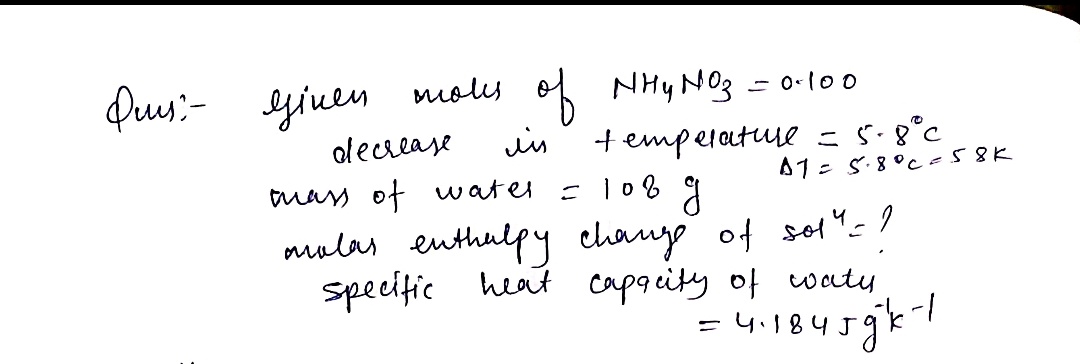 Ques:- Given moles of NH4NO3 = 0.100
decrease in temperature = 5.8°C
ΔT = 5.8°C = 5 8K
mass of water = 108 g
molar enthalpy change of solⁿ = ?
specific heat capacity of water
= 4.184 J g⁻¹K⁻¹